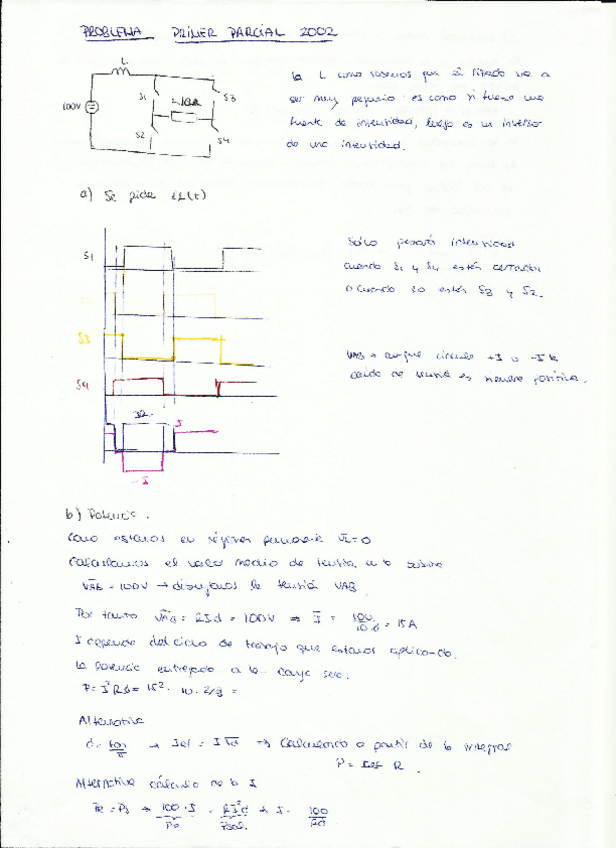 PROBLEMA PRIMER PARCIAL 2002
L
S1
S3
100V
10Ω
S2
S4
la L como sabemos que el rizado va a
ser muy pequeño es como si fuera una
fuente de intensidad, luego es un inversor
de una intensidad.
a) Se pide iL(t)
S1
Sólo pasará intensidad
cuando S1 y S4 están cerrados
o cuando lo están S3 y S2.
S3
VAB → aunque circule +I o -I la
caída de tensión es siempre positiva.
S4
I
-I
b) Potencia.
Como estamos en régimen permanente VL=0
Calculamos el valor medio de tensión
VAB = 100V → dibujamos la tensión VAB
Por tanto VAB = RId = 100V ⇒ I = 100/10·d = 15A
I depende del ciclo de trabajo que estamos aplicando.
La Potencia entregada a la carga será:
P = I²Rd = 15² · 10 · 2/3 =
Alternativa
d = ton/T → Ief = I√d ⇒ Calculando a partir de la integral
P = Ief R.
Alternativa cálculo de la I
Pe = Ps → 100·I = RI²d → I = 100/Rd
Pe
Psal.